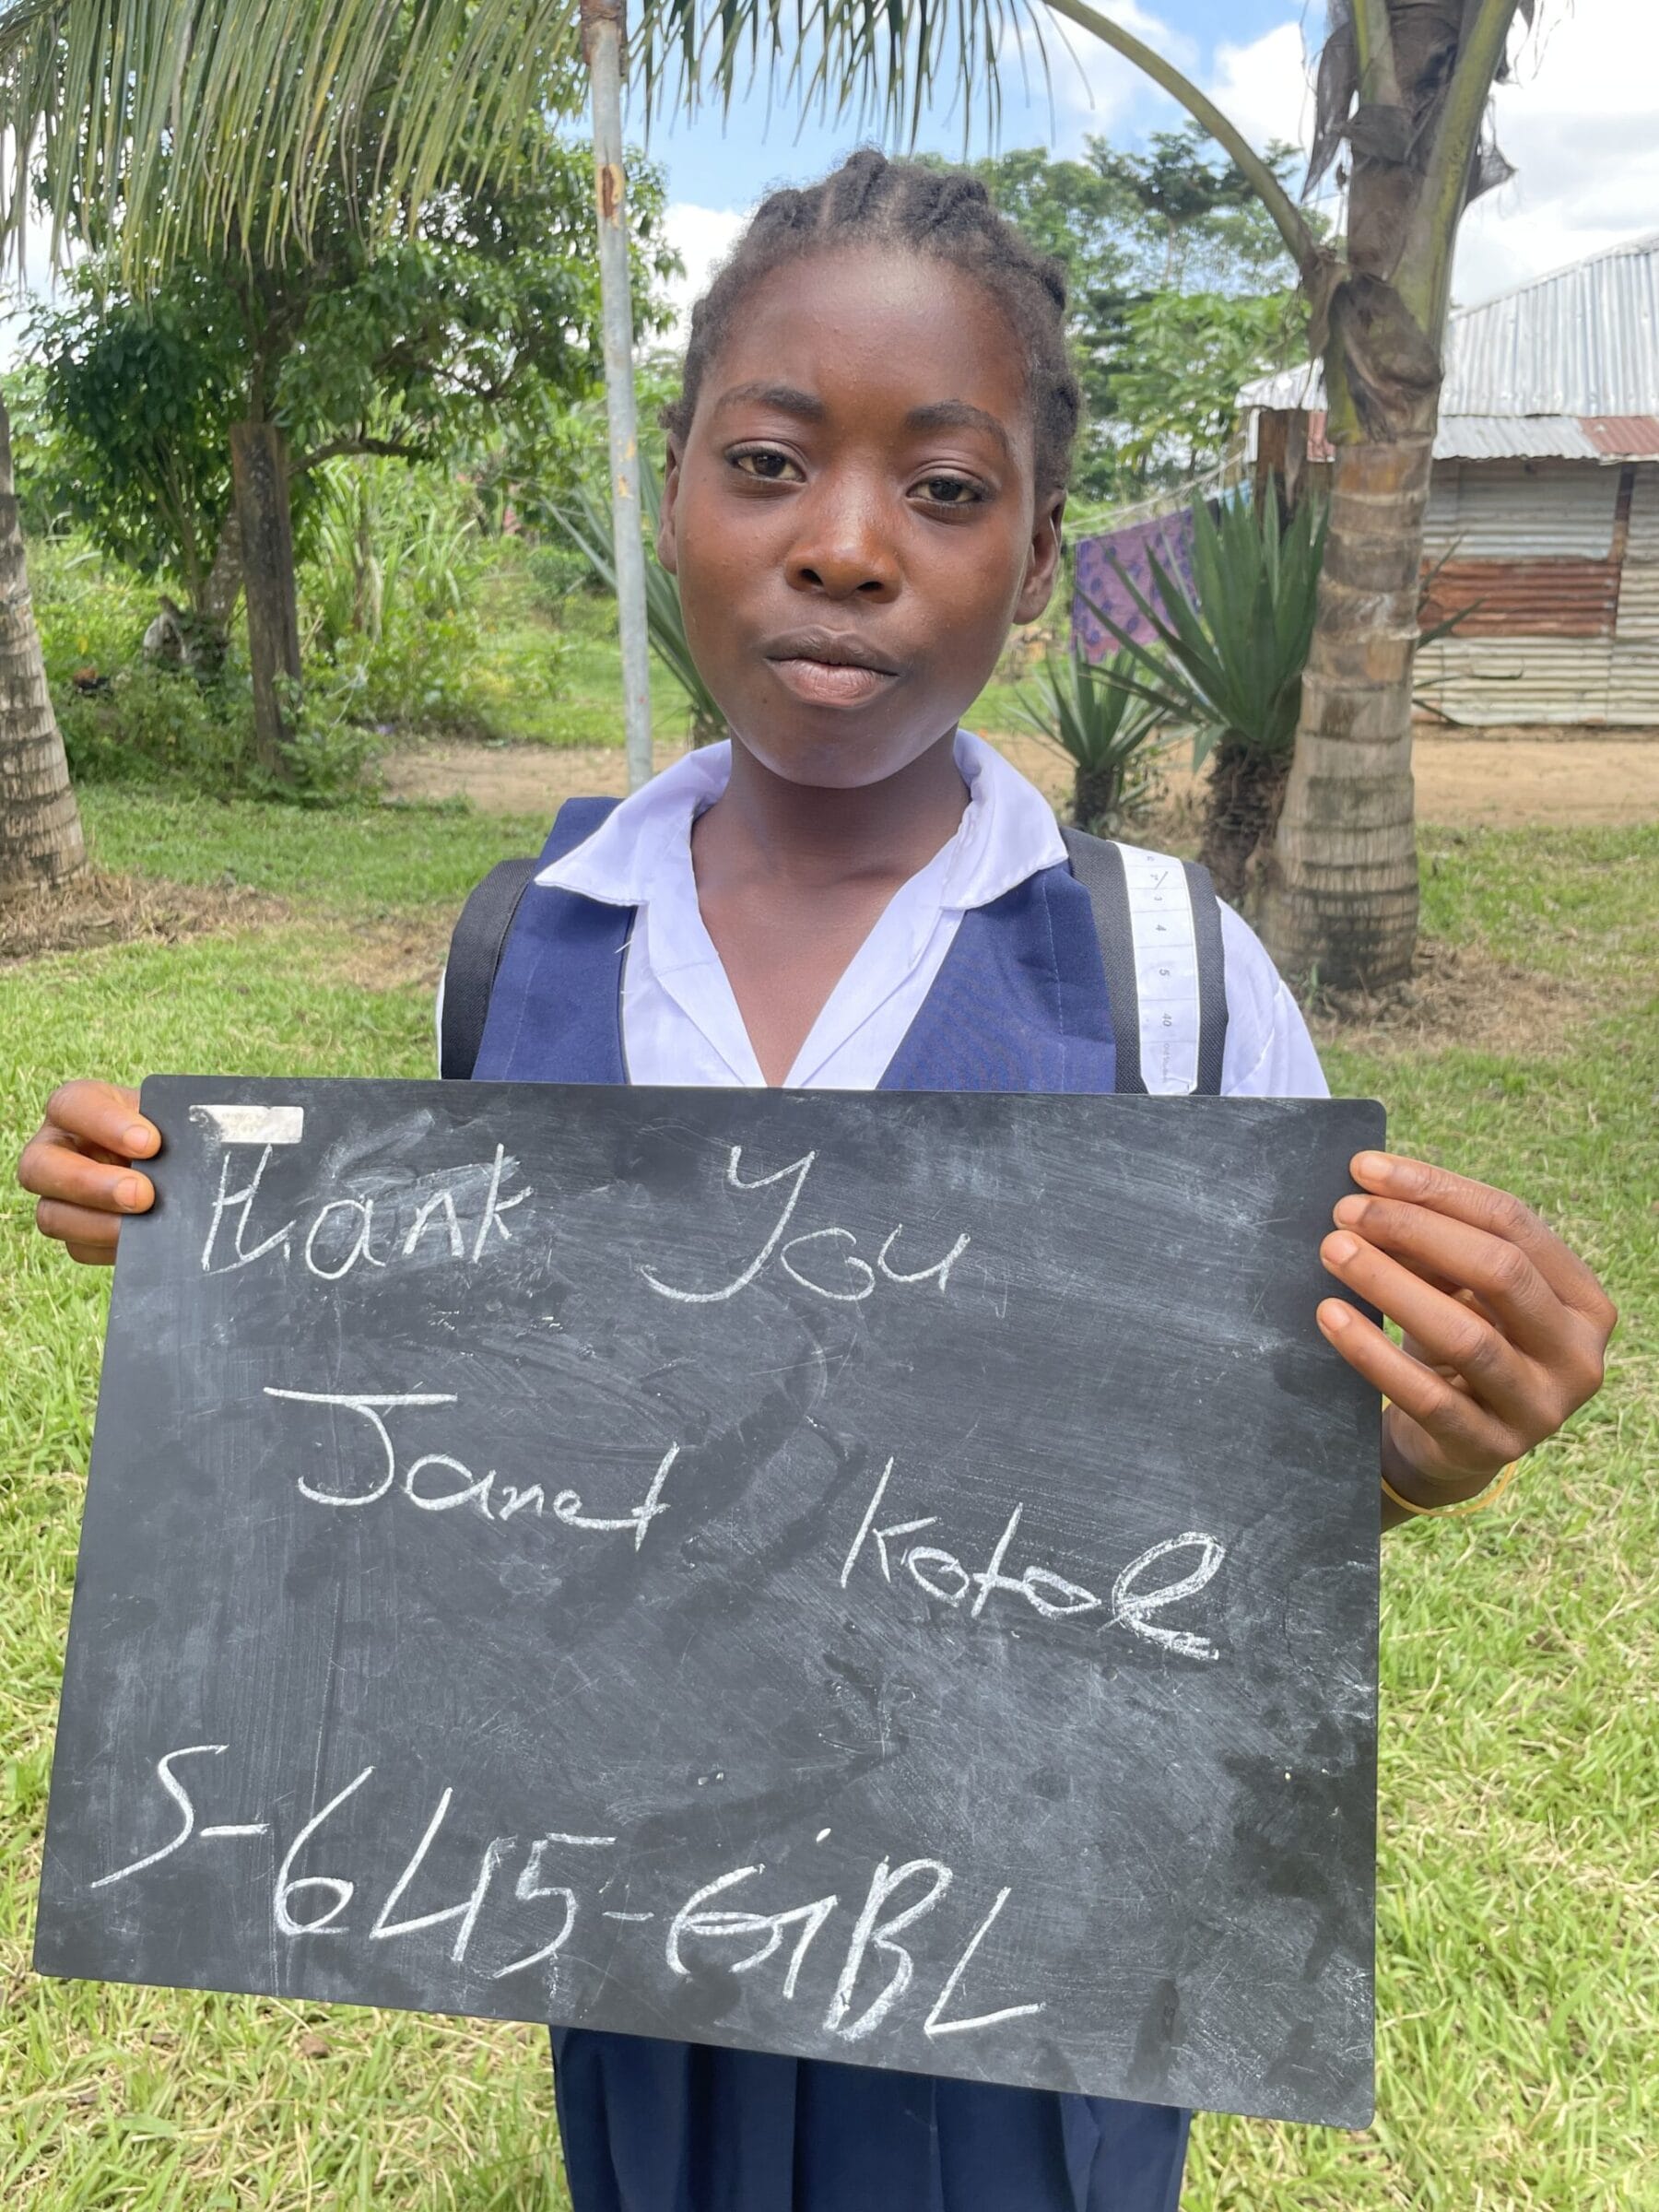 Thank You
Janet Kotoe
S-645-GiBL